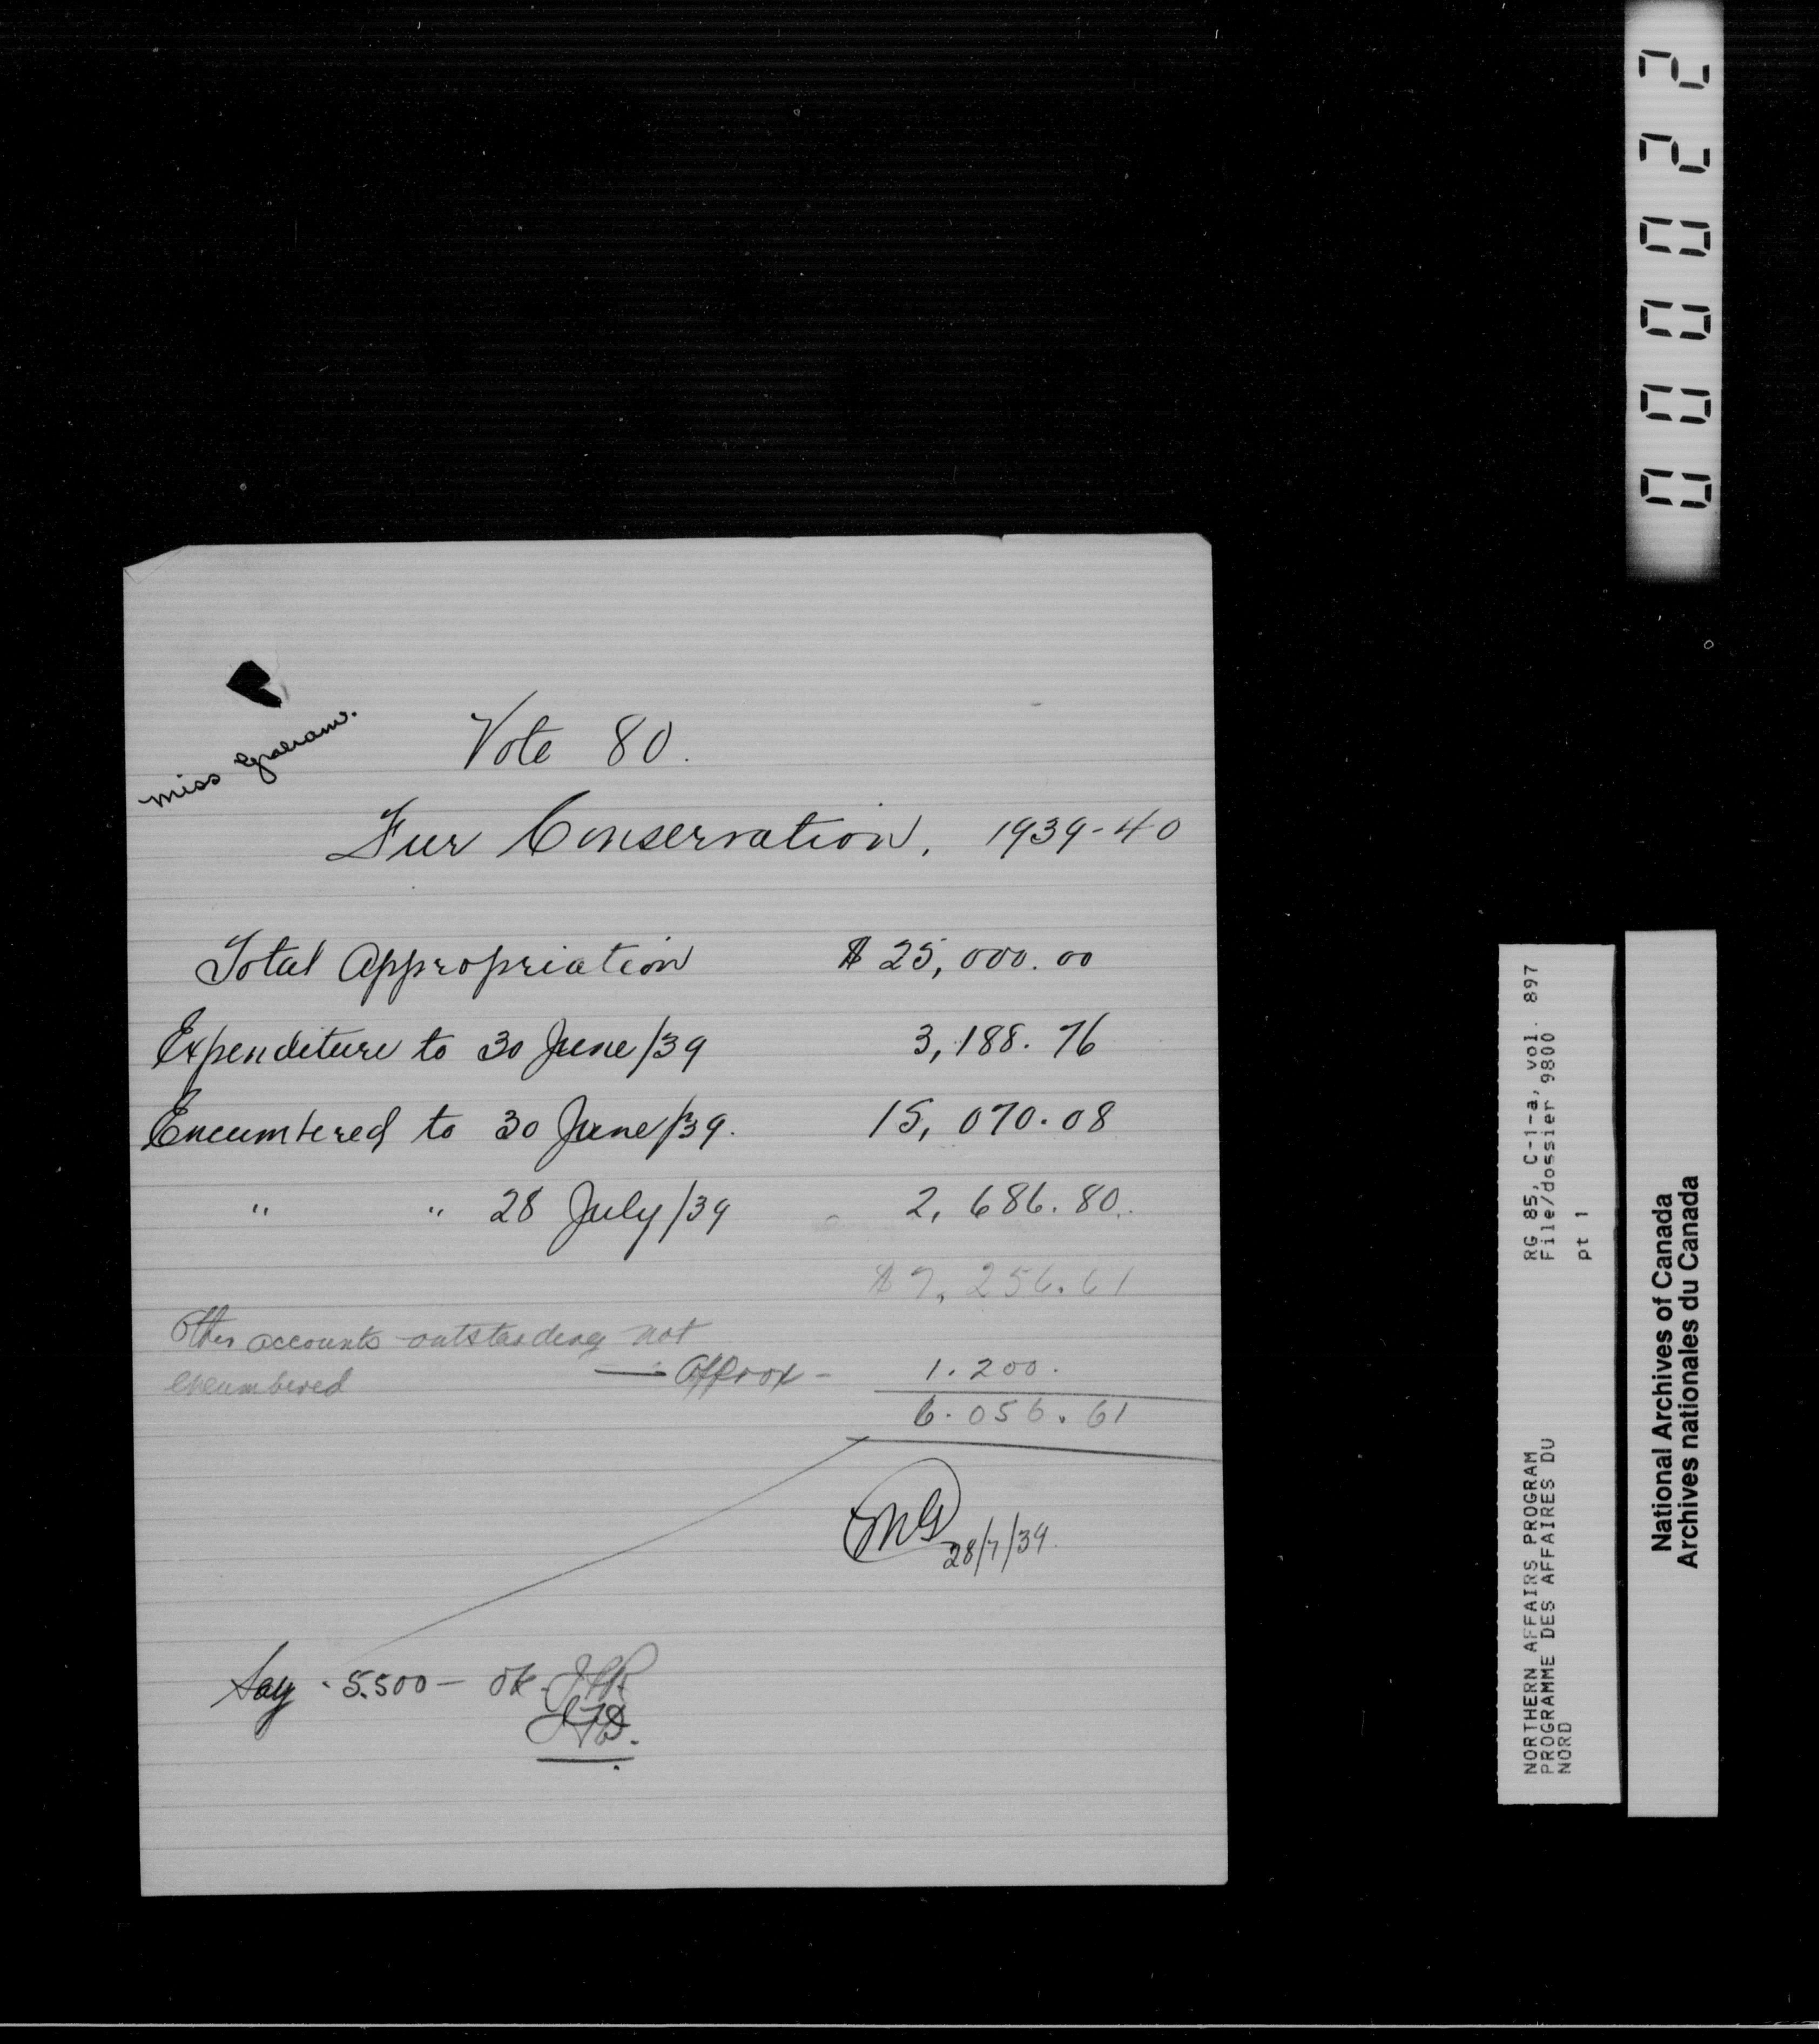 000022
Miss Graham.
Vote 80.
Fur Conservation, 1939-40
Total Appropriation $ 25,000.00
Expenditure to 30 June/39 3,188.76
Encumbered to 30 June/39. 15,070.08
" " 28 July/39 2,686.80.
$ 7,256.61
Other accounts outstanding not
encumbered — Approx - 1.200.
6.056.61
28/7/39.
Say . 5.500 — OK.
RG 85, C-1-a, vol. 897
File/dossier 9800
pt 1
NORTHERN AFFAIRS PROGRAM
PROGRAMME DES AFFAIRES DU
NORD
National Archives of Canada
Archives nationales du Canada